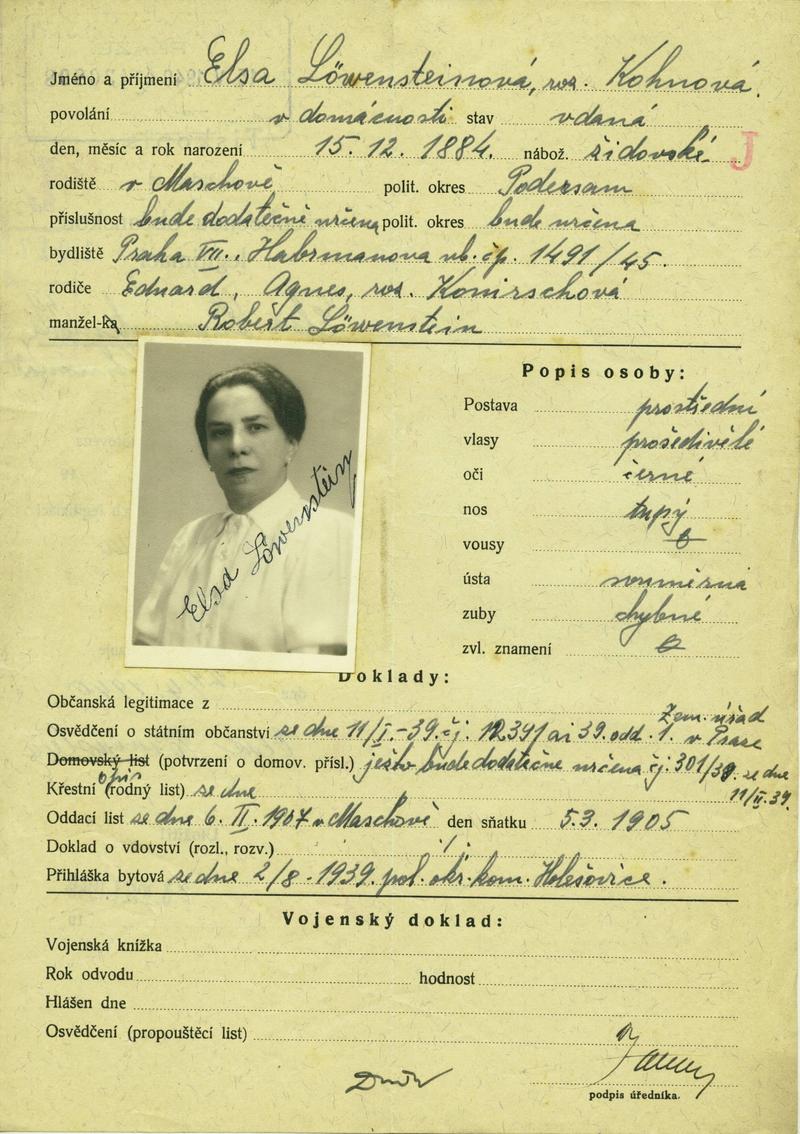 Jméno a příjmení Elsa Löwensteinová, roz. Kohnová.
povolání v domácnosti stav vdaná
den, měsíc a rok narození 15. 12. 1884. nábož. židovské J
rodiště v Maschově polit. okres Podersam
příslušnost bude dodatečně určena polit. okres bude určena
bydliště Praha VII., Habrmanova ul. čp. 1491/45.
rodiče Eduard, Agnes, roz. Konirschová
manžel-ka Robert Löwenstein
Popis osoby:
Postava prostřední
vlasy prošedivělé
oči černé
nos tupý
vousy 0
ústa souměrná
zuby chybné
zvl. znamení 0
Elsa Löwenstein
Doklady:
Občanská legitimace z
Zem. úřad
Osvědčení o státním občanství ze dne 11/I.-39. čj. 12391 ai 39. odd. 1. v Praze
Domovský list (potvrzení o domov. přísl.) ježto bude dodatečně určena čj. 301/39. ze dne
opis 11/II.39.
Křestní (rodný list) ze dne
Oddací list ze dne 6. II. 1907 v Maschově den sňatku 5.3. 1905
Doklad o vdovství (rozl., rozv.) /.
Přihláška bytová ze dne 2/8 - 1939. pol. okr. kom. Holešovice.
Vojenský doklad:
Vojenská knížka
Rok odvodu hodnost
Hlášen dne
Osvědčení (propouštěcí list)
podpis úředníka.